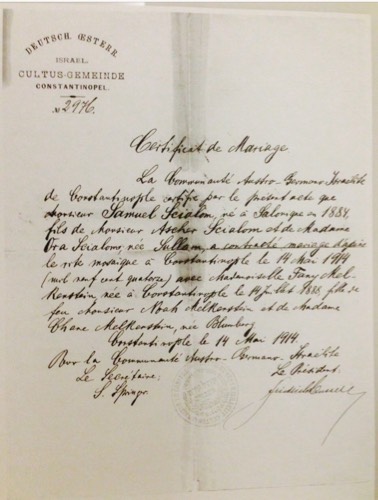 DEUTSCH. ŒSTERR.
ISRAEL.
CULTUS-GEMEINDE
CONSTANTINOPEL.
№ 2976.
Certificat de Mariage
La Communauté Austro-Germano-Israélite
de Constantinople certifie par le présent acte que
Monsieur Samuel Scialom, né à Salonique en 1884,
fils de Monsieur Ascher Scialom et de Madame
Ora Scialom, née Sullam, a contracté mariage d'après
le rite mosaïque à Constantinople le 14 Mai 1914
(mil neuf cent quatorze) avec Mademoiselle Fany Mel-
Kenstein, née à Constantinople le 14 1885 fille de
feu Monsieur Noah Melkenstein et de Madame
Chane Melkenstein, née Blumberg
Constantinople le 14 Mai 1914.
Pour la Communauté Austro-Germano-Israélite
Le Secrétaire; Le Président.
S. Springer